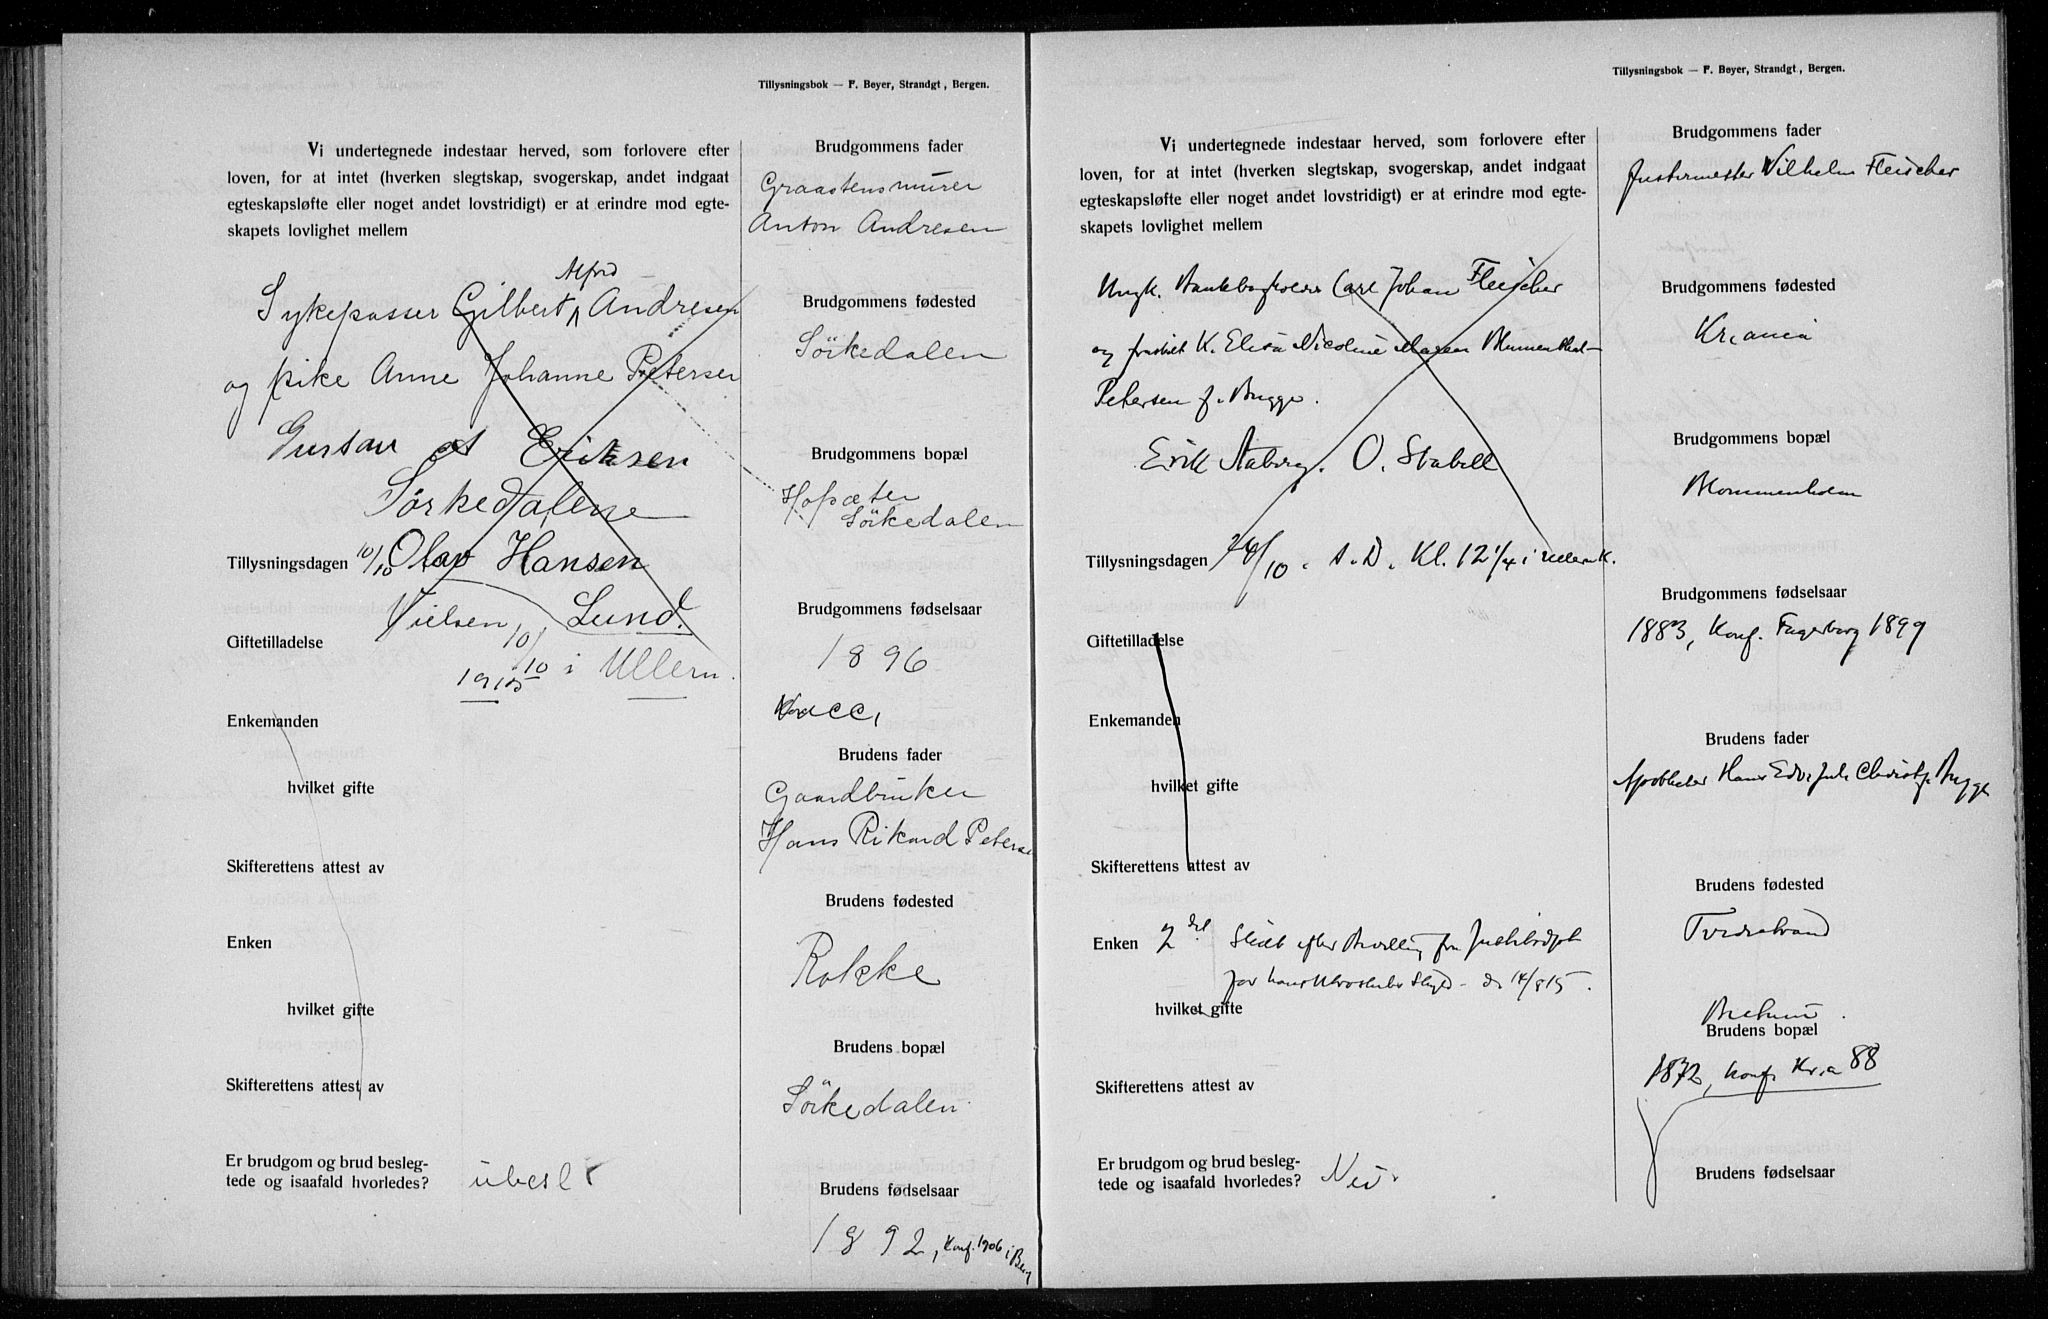 Tillysningsbok — F. Beyer, Strandgt, Bergen.
Vi undertegnede indestaar herved, som forlovere efter
loven, for at intet (hverken slegtskap, svogerskap, andet indgaat
egteskapsløfte eller noget andet lovstridigt) er at erindre mod egte-
skapets lovlighet mellem
Alfred
Sykepasser Gilbert ∧ Andresen
og pike Anne Johanne Petersen
Gustav Eriksen
Sørkedalene
Tillysningsdagen 10/10 Olav Hansen
Nielsen Lund.
Giftetilladelse
10/10 1915 i Ullern.
Enkemanden
hvilket gifte
Skifterettens attest av
Enken
hvilket gifte
Skifterettens attest av
Er brudgom og brud besleg-
tede og isaafald hvorledes? ubesl
Brudgommens fader
Graastensmurer
Anton Andresen
Brudgommens fødested
Sörkedalen
Brudgommens bopæl
Hopsæter
Sörkedalen
Brudgommens fødselsaar
1896
Vacc,
Brudens fader
Gaardbruker
Hans Rikard Peterse
Brudens fødested
Rokke
Brudens bopæl
Sörkedalen
Brudens fødselsaar
1892, Konf. 1906 i Berg
Tillysningsbok — F. Beyer, Strandgt, Bergen.
Vi undertegnede indestaar herved, som forlovere efter
loven, for at intet (hverken slegtskap, svogerskap, andet indgaat
egteskapsløfte eller noget andet lovstridigt) er at erindre mod egte-
skapets lovlighet mellem
Ungk. Bankbogholder Carl Johan Fleischer
og fraskilt K. Elisa Nicoline Maren Blumenthal-
Petersen f. Bugge.
Erik Aaberg. O. Stabell
Tillysningsdagen 24/10. s. D. Kl. 12 1/4 i Ullern K.
Giftetilladelse
Enkemanden
hvilket gifte
Skifterettens attest av
Enken 2det Skilt efter Bevilling fra Justitsdept
14/8 15.
hvilket gifte
Skifterettens attest av
Er brudgom og brud besleg-
tede og isaafald hvorledes? Nei.
Brudgommens fader
Justermester Vilhelm Fleischer
Brudgommens fødested
Kr.ania
Brudgommens bopæl
Blommenholm
Brudgommens fødselsaar
1883, Konf. Fagerborg 1899
Brudens fader
Apotheker Hans Edv. Jul. Christ. Bugge
Brudens fødested
Tvedestrand
Bærum.
Brudens bopæl
1872, Konf. Kr.a 88
Brudens fødselsaar